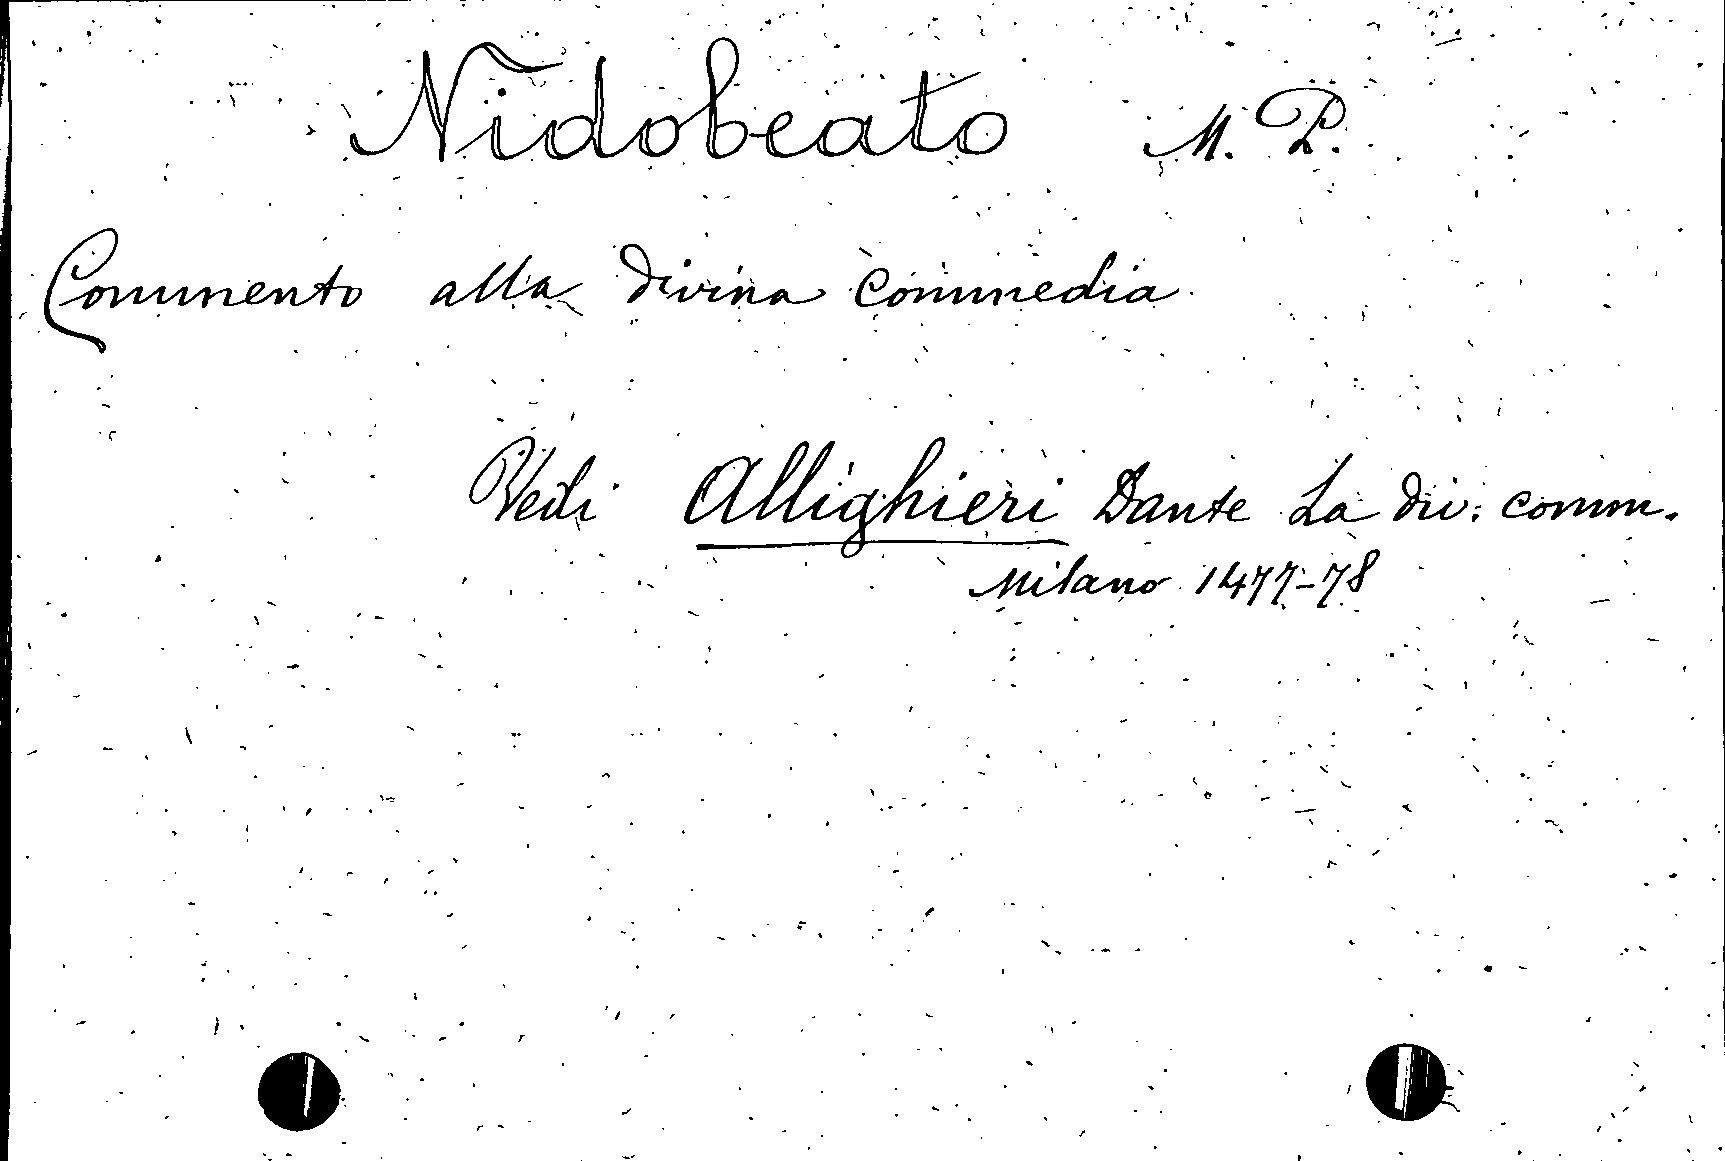 Nidobeato M. P.
Commento alla divina commedia
Vedi Allighieri Dante La div. comm.
Milano 1477-78